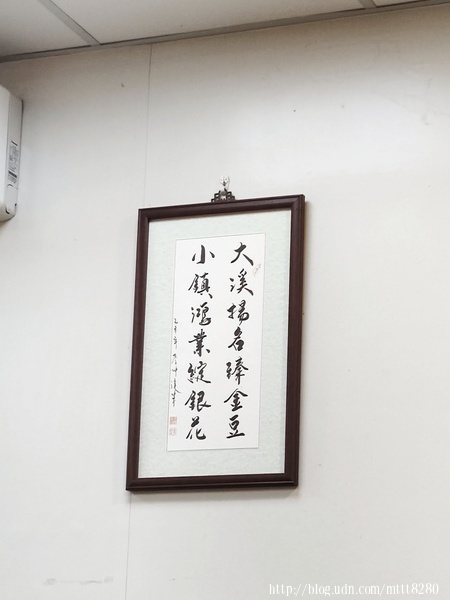 大溪揚名臻金豆
小鎮鴻業綻銀花
http://blog.udn.com/mttt8280